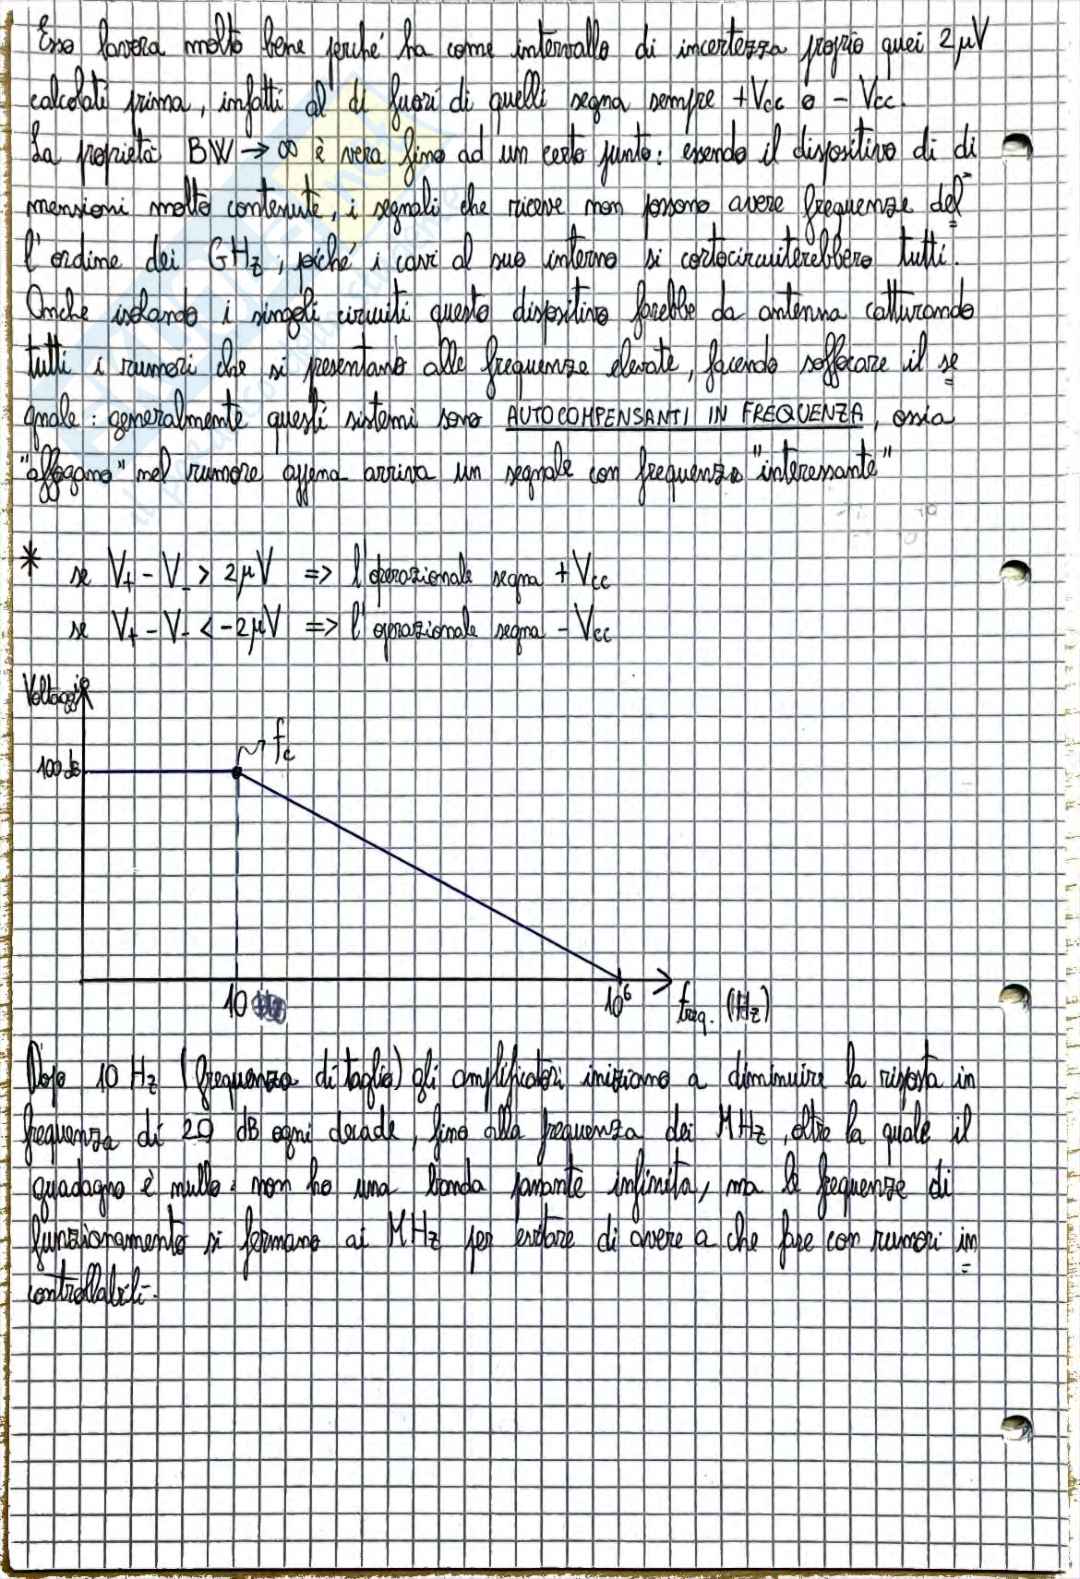 Esso lavora molto bene perché ha come intervallo di incertezza proprio quei 2μV
calcolati prima, infatti al di fuori di quelli segna sempre +Vcc o - Vcc.
La proprietà BW → ∞ è vera fino ad un certo punto: essendo il dispositivo di di
mensioni molto contenute, i segnali che riceve non possono avere frequenze del
l'ordine dei GHz, poiché i cavi al suo interno si cortocircuiterebbero tutti.
Anche isolando i singoli circuiti questo dispositivo farebbe da antenna catturando
tutti i rumori che si presentano alle frequenze elevate, facendo soffocare il se
gnale: generalmente questi sistemi sono AUTOCOMPENSANTI IN FREQUENZA, ossia
"affogano" nel rumore appena arriva un segnale con frequenza "interessante"
* se V+ - V- > 2μV => l'operazionale segna +Vcc
se V+ - V- < -2μV => l'operazionale segna - Vcc
Voltaggio
fc
100 dB
10
10⁶
freq. (Hz)
Dopo 10 Hz (frequenza di taglio) gli amplificatori iniziano a diminuire la risposta in
frequenza di 20 dB ogni decade, fino alla frequenza dei MHz, oltre la quale il
guadagno è nullo: non ho una banda passante infinita, ma le frequenze di
funzionamento si fermano ai MHz per evitare di avere a che fare con rumori in
controllabili.